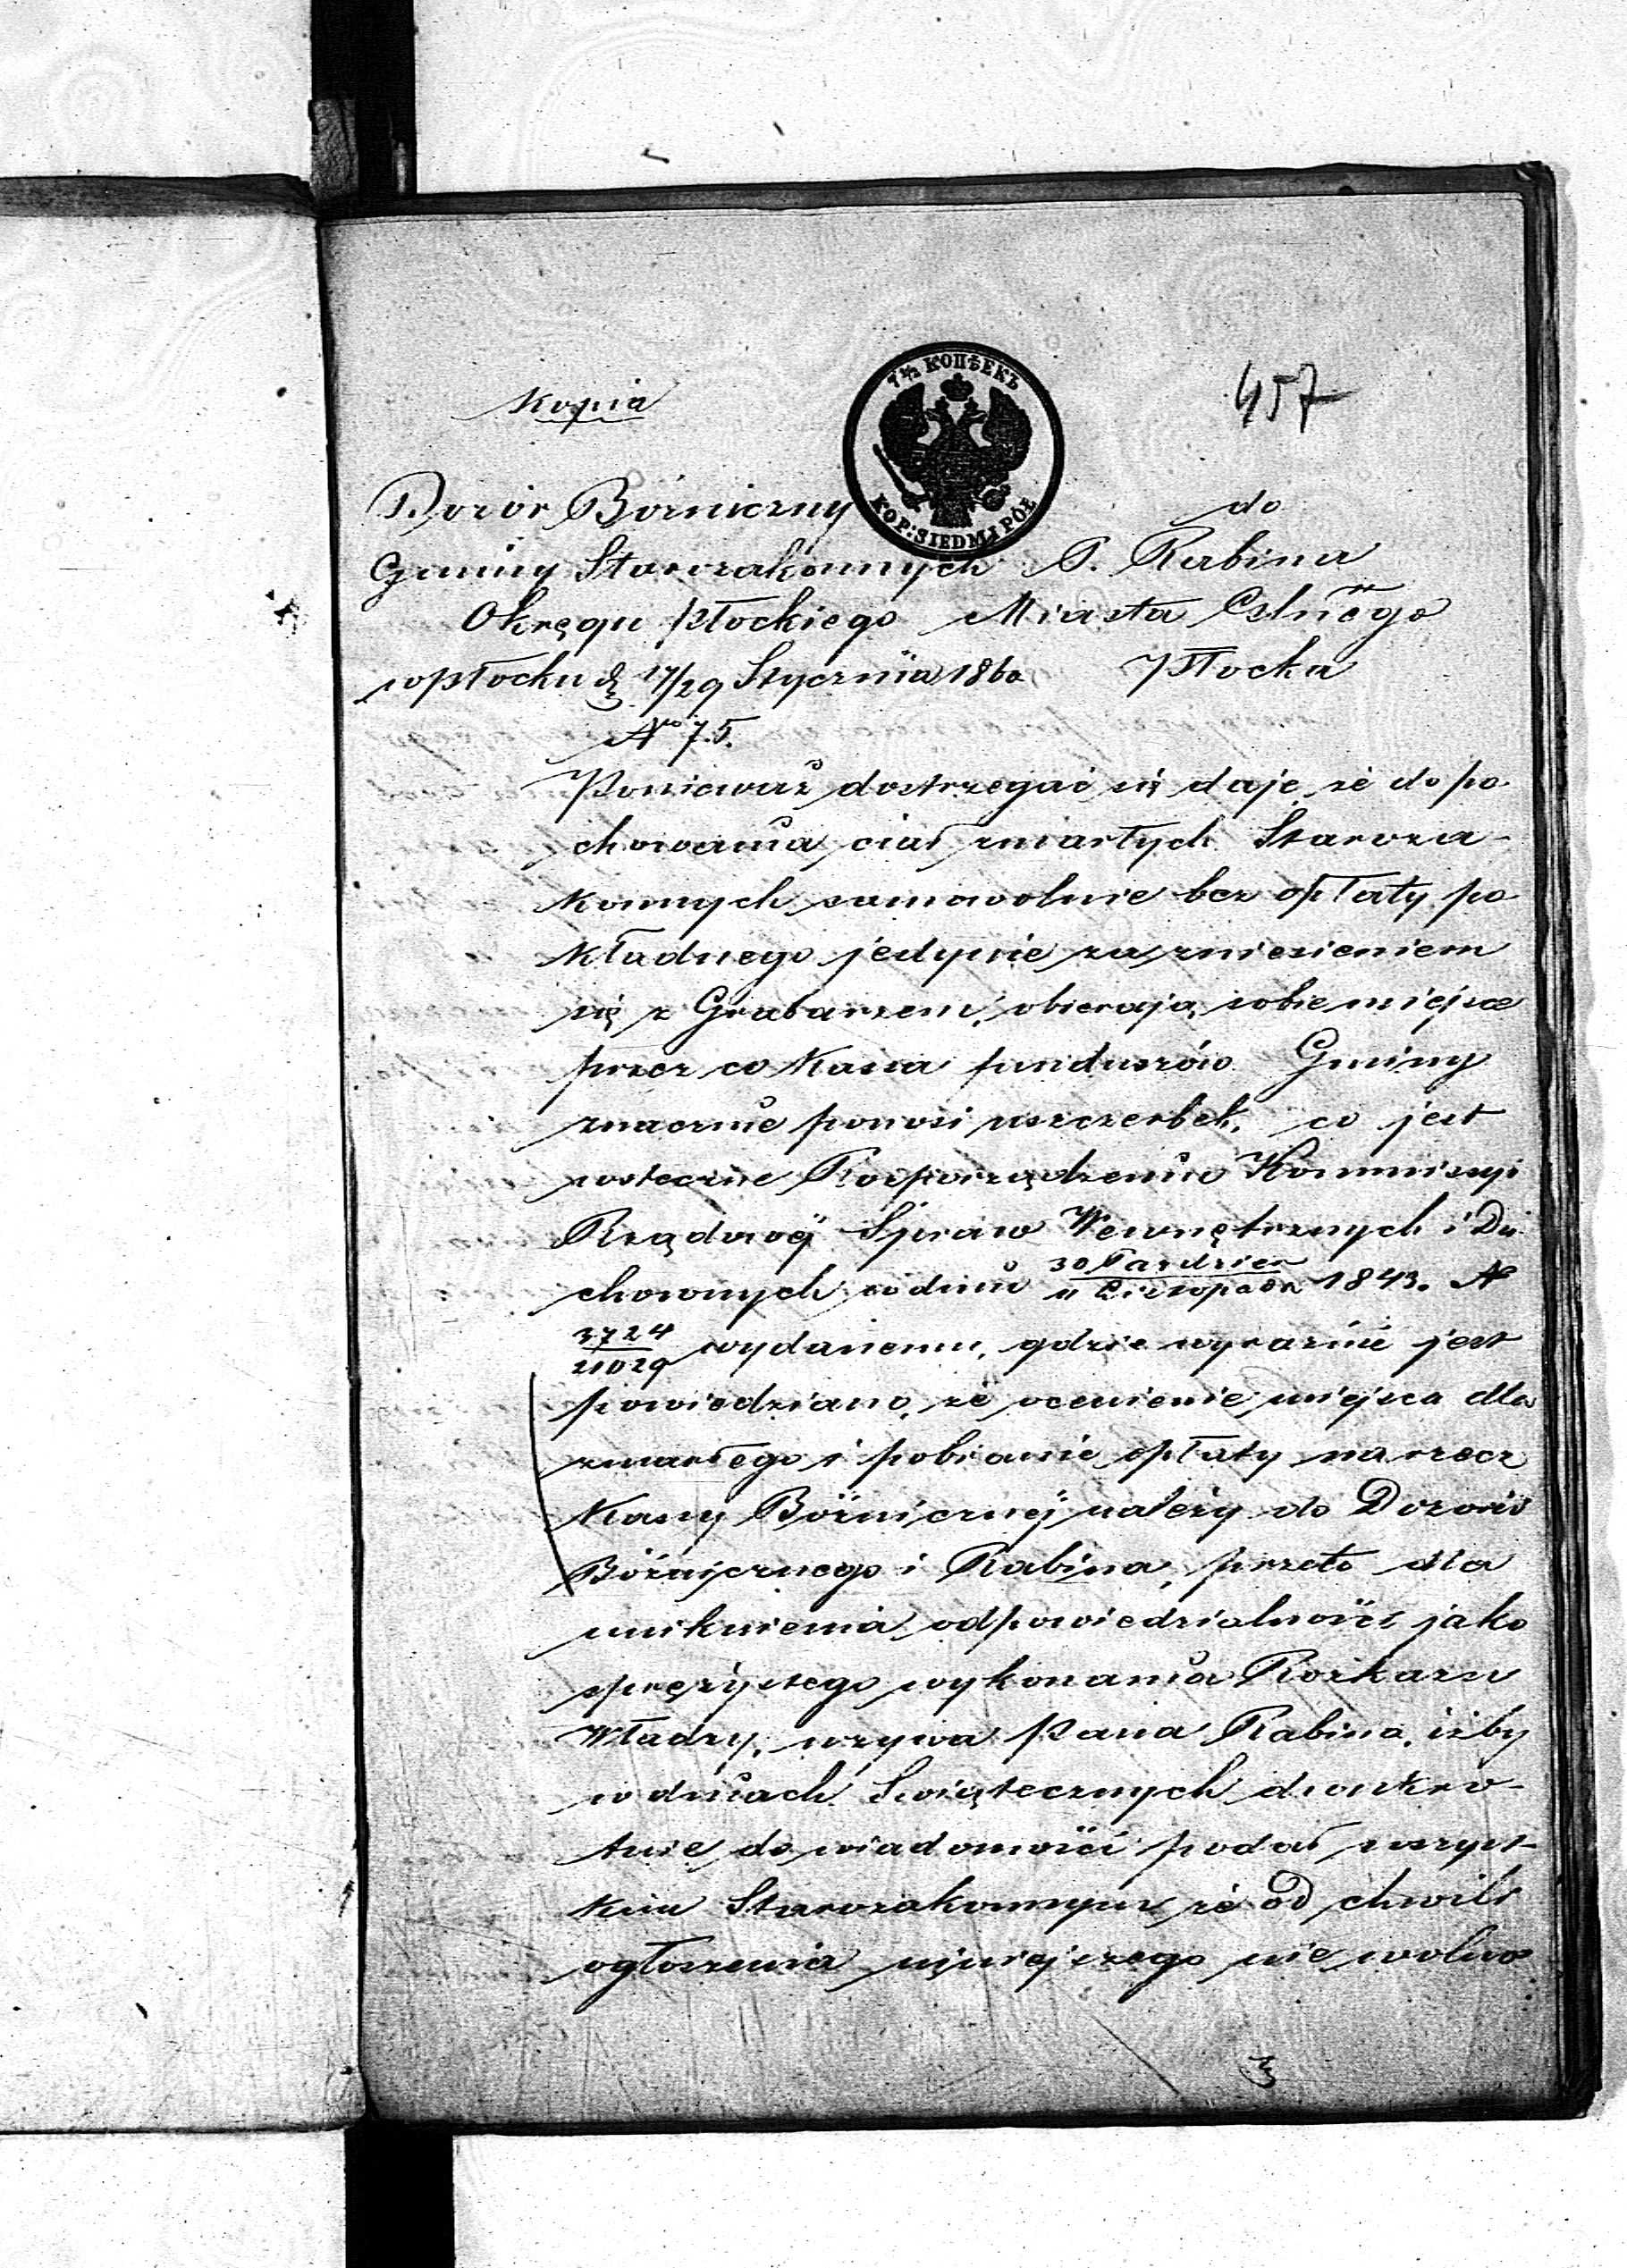 Kopia
7 1/2 КОПѢЕКЪ
KOP: SIEDM I PÓŁ
457
Dozór Bóżniczny
do
Gminy Starozakonnych P. Rabina
Okręgu Płockiego Miasta Głnego
w Płocku d 17/29 Stycznia 1860 Płocka
No 75.
Ponieważ dostrzegać się daje że do po-
chowania ciał zmarłych Staroza-
konnych samowolnie bez opłaty po-
kładnego jedynie za zniesieniem
się z Grabarzem, obierają sobie miejsce
przez co Kassa funduszów Gminy
znacznie ponosi uszczerbek, co jest
wsteczne Rozporządzeniu Kommissyi
Rządowej Spraw Wewnętrznych i Du-
chownych w dniu 30 Paździer / 11 Listopada 1843. N
3724/21029 wydanemu, gdzie wyraźnie jest
powiedziano, że ocenienie miejsca dla
zmarłego i pobranie opłaty na rzecz
Kassy Bóżnicznej należy do Dozoru
Bóżnicznego i Rabina, przeto dla
uniknienia odpowiedzialności jako
sprężystego wykonania Rozkazu
Władzy, wzywa Pana Rabina, iżby
w dniach Świątecznych dwukro-
tnie do wiadomości podał wszyst-
kim Starozakonnym że od chwili
ogłoszenia niniejszego nie wolno
3